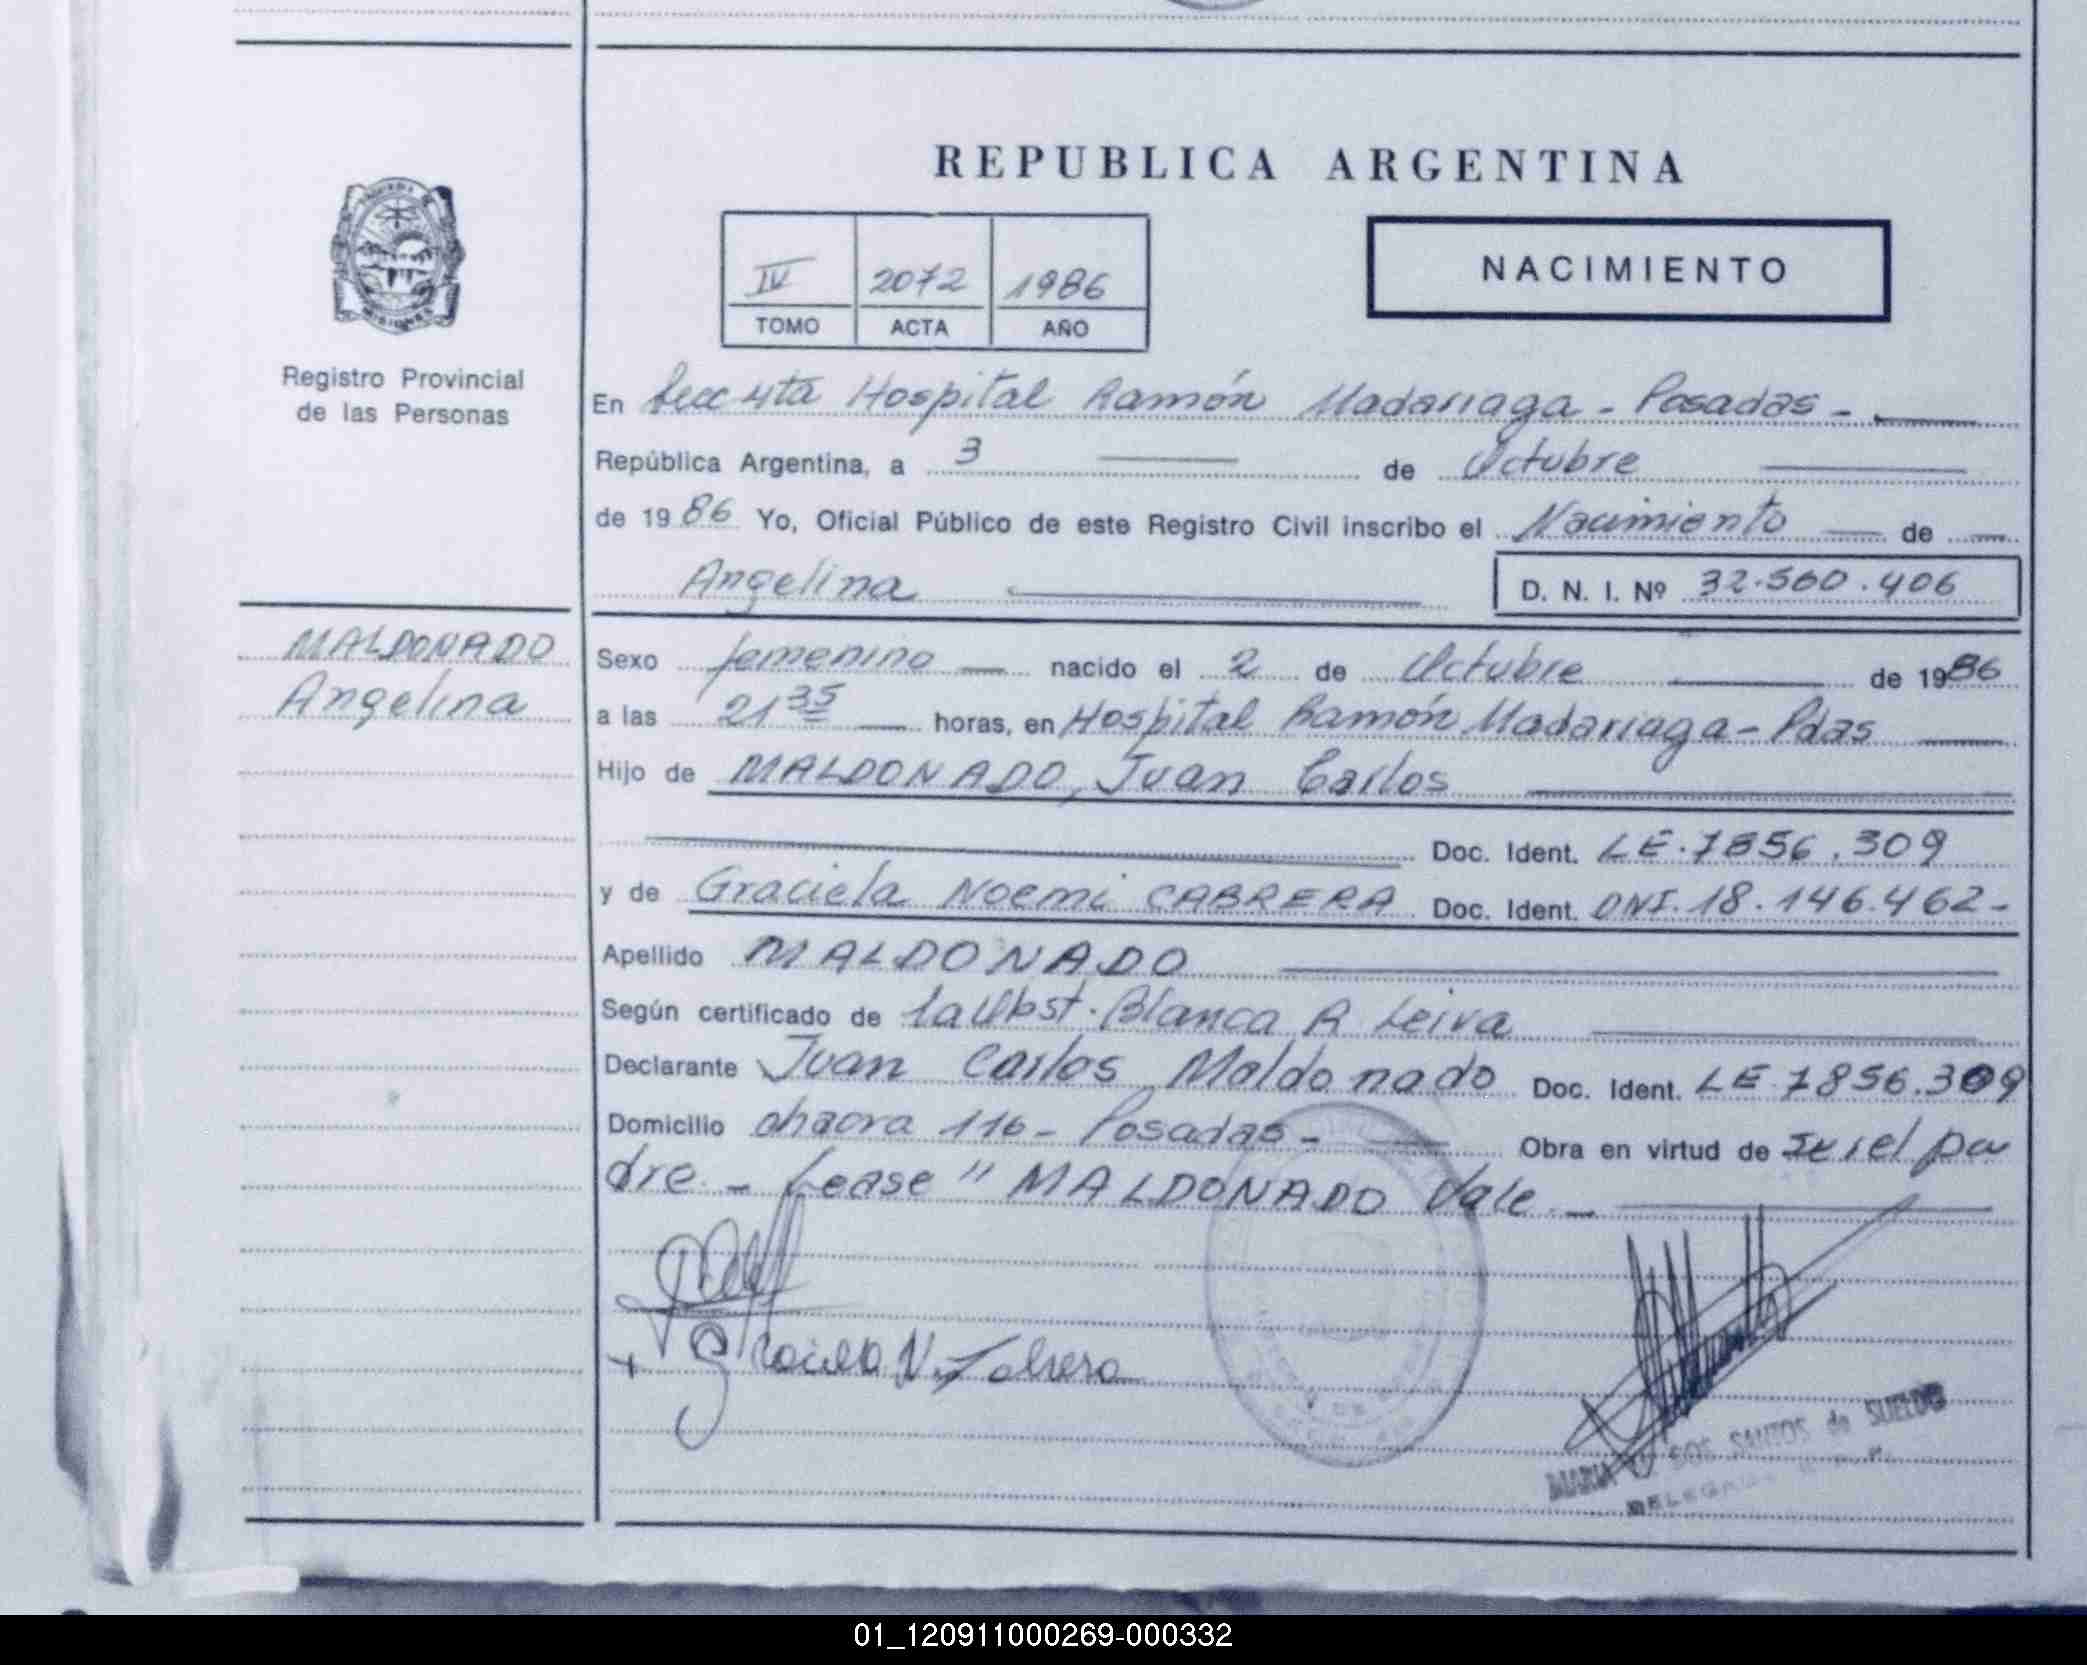 REPUBLICA ARGENTINA
IV 2072 1986
TOMO ACTA AÑO
NACIMIENTO
Registro Provincial
de las Personas
MALDONADO
Angelina
En Secc 4ta Hospital Ramón Madariaga - Posadas -
República Argentina, a 3 de Octubre
de 1986 Yo, Oficial Público de este Registro Civil inscribo el Nacimiento de
Angelina D. N. I. Nº 32.560.406
Sexo femenino nacido el 2 de Octubre de 1986
a las 21 35 horas, en Hospital Ramón Madariaga - Pdas
Hijo de MALDONADO, Juan Carlos
Doc. Ident. LE.7856.309
y de Graciela Noemi CABRERA Doc. Ident. DNI.18.146.462-
Apellido MALDONADO
Según certificado de la Obst. Blanca R Leiva
Declarante Juan Carlos Maldonado Doc. Ident. LE 7856.309
Domicilio chacra 116 - Posadas - Obra en virtud de ser el pa
dre - Lease " MALDONADO Vale -
MARIA DOS SANTOS de SUELDO
01_120911000269-000332